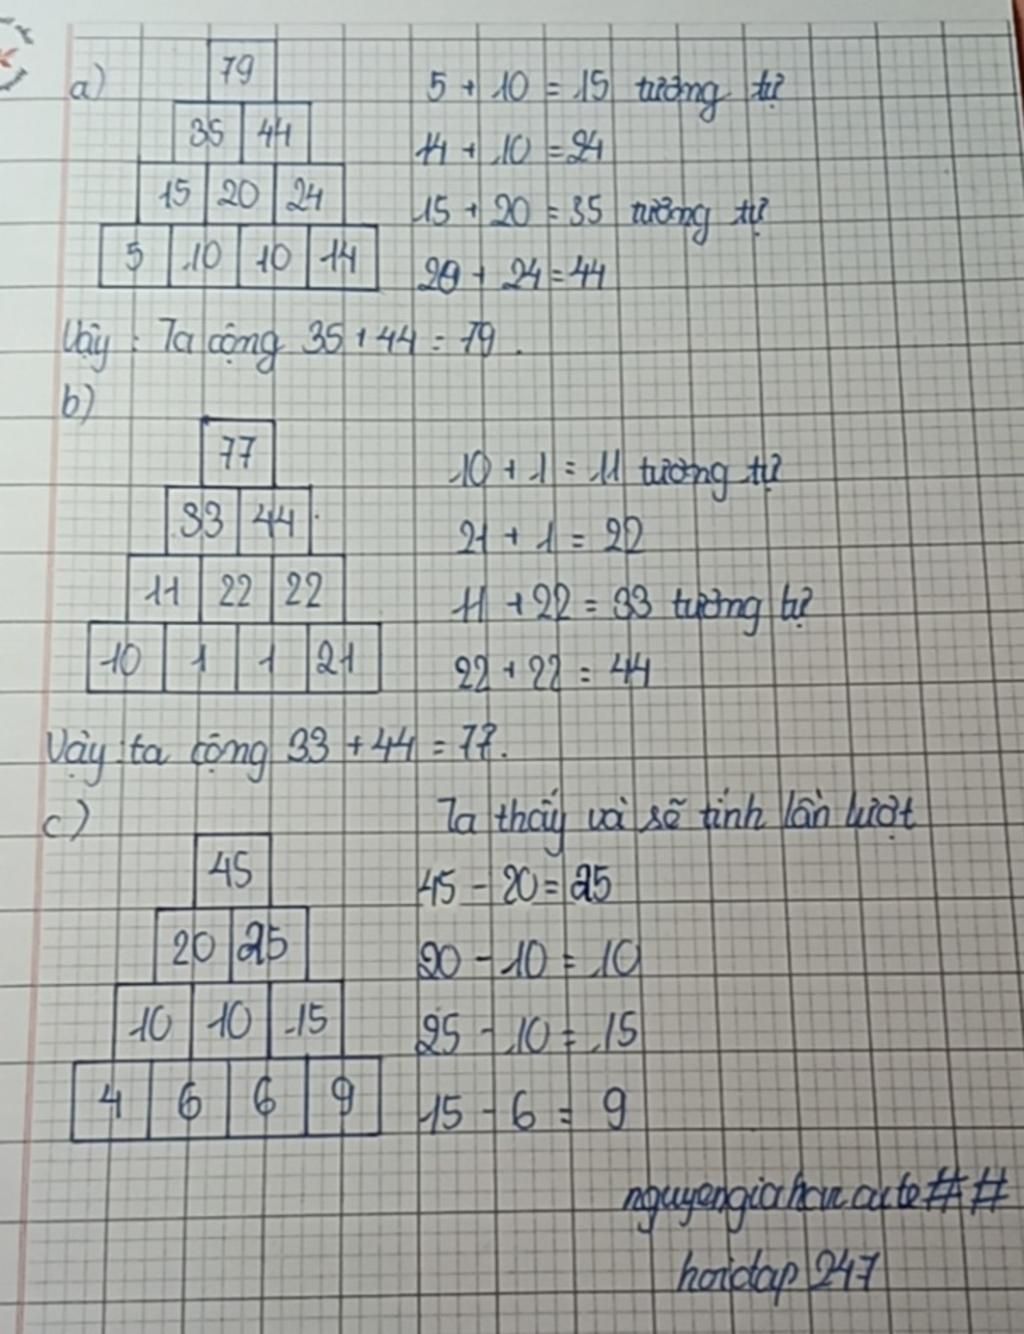 a)
79
35 44
15 20 24
5 10 10 14
5 + 10 = 15 tương tự
14 + 10 = 24
15 + 20 = 35 tương tự
20 + 24 = 44
Vậy : Ta cộng 35 + 44 = 79.
b)
77
33 44
11 22 22
10 1 1 21
10 + 1 = 11 tương tự
21 + 1 = 22
11 + 22 = 33 tương tự
22 + 22 = 44
Vậy ta cộng 33 + 44 = 77.
c)
45
20 25
10 10 15
4 6 6 9
Ta thấy và sẽ tính lần lượt
45 - 20 = 25
20 - 10 = 10
25 - 10 = 15
15 - 6 = 9
nguyengiahancute##
hoidap 247